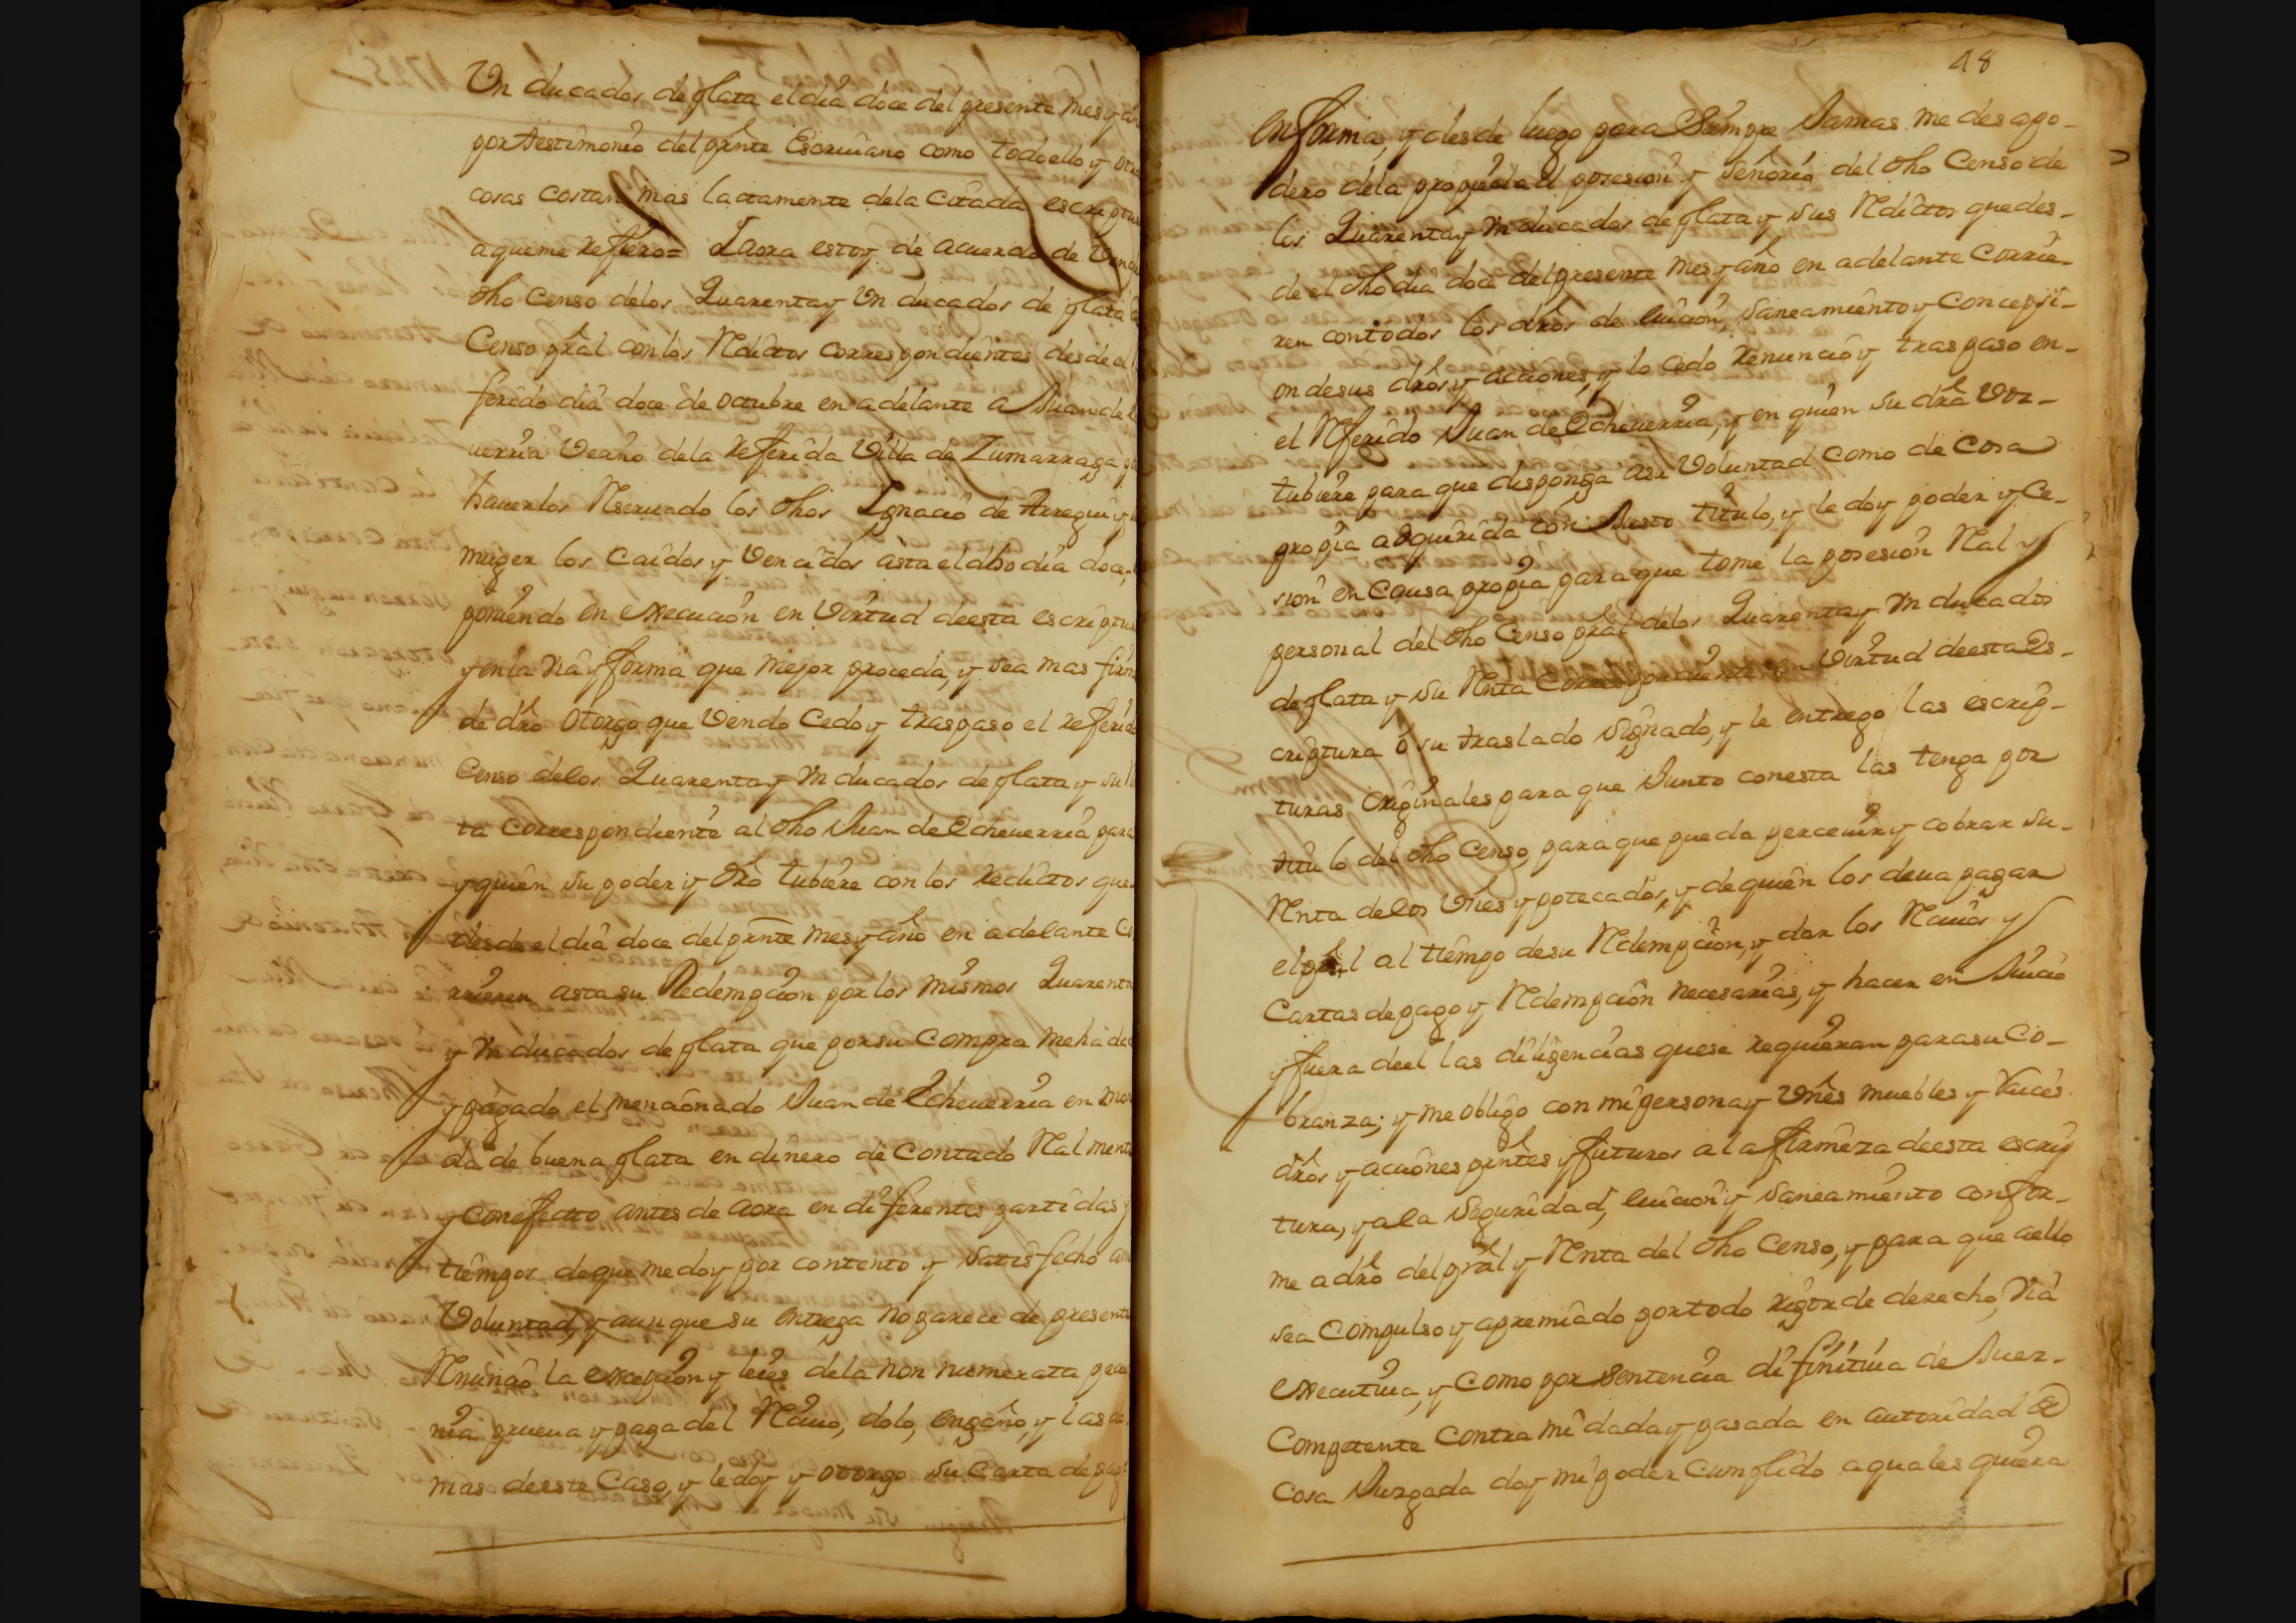 Un ducados de plata el dia doce del presente mes y
por testimonio del pnte Escriuano como todo ello y otras
cosas costan mas lactamente dela Citada escriptu
aqueme refiero= Iaora estoy de acuerdo de Vend
dho Censo delos Quarenta y Un ducados de plata
Censo pral con los Rdictos correspondientes desde el
ferido dia doce de octubre en adelante a Juan de
uerria Vecino dela referida Villa de Zumarraga
hauerlos Rseruado los dhos Ignacio de Arregui y
muger los Caidos y Vencidos asta el dho dia doce,
poniendo en execucion en Virtud de esta escriptu
y en la Via y forma que mejor proceda, y sea mas firm
de dro otorgo que Vendo Cedo y traspaso el referid
Censo delos Quarenta y Un ducados de plata y su R
ta Correspondiente al dho Juan de Echeuerria para
y quien su poder y dro tubiere con los redictos que
desde el dia doce del pnte mes y año en adelante C
rrieren asta su Redempcion por los mismos Quarenta
y Un ducados de plata que por su Compra me ha da
y pagado el mencionado Juan de Echeuerria en mon
da de buena plata en dinero de Contado Rlmente
y Conefecto antes de aora en diferentes partidas y
tiempos de que me doy por contento y satisfecho
Voluntad, y aunque su entrega no parece de presente
Rnuncio la excepcion y leies dela non numerata pecu
nia prueua y paga del Rciuo, dolo, engaño, y las de
mas de este Caso, y le doy y otorgo su Carta de pag
48
en forma, y desde luego para Siempre Jamas me desapo-
dero dela propiedad posesion y señorio del dho Censo de
los Quarenta y Un ducados de plata y sus Rdictos que des-
de el dho dia doce del presente mes y año en adelante Corrie-
ren contodos los dros de euicion, saneamiento y Concepsi-
on desus dros y acciones, y lo cedo renuncio y traspaso en-
el Rferido Juan de Echeuerria, y en quien su dra Voz-
tubiere para que disponga asu Voluntad Como de Cosa
propia adquirida con Justo titulo, y le doy poder y Ce-
sion en Causa propia para que tome la posesion Ral y
personal del dho Censo pral delos Quarenta y Un ducados
de plata y su Rnta Correspondiente en Virtud de esta Es-
criptura ó su traslado signado, y le entrego las escrip-
turas originales para que Junto con esta las tenga por
titulo del dho Censo, para que pueda perceuir y cobrar su-
Rnta delos Vnes ypotecados, y de quien los deua pagar
el pral al tiempo de su Rdempcion, y dar los Rciuos y
Cartas de pago y Rdempcion necesarias, y hacer en Juicio
y fuera deel las diligencias que se requieran para su Co-
branza; y me obligo con mi persona y Vnes muebles y raices
dros y acciones pntes y futuros a la firmeza de esta escrip
tura, y a la seguridad, euicion y saneamiento confor-
me a dro del pral y Rnta del dho Censo, y para que aello
sea Compulso y apremiado por todo rigor de derecho, Via
executiua, y Como por sentencia difinitiua de Juez-
Competente Contra mi dada y pasada en autoridad de
Cosa Juzgada doy mi poder Cumplido a quales quiera